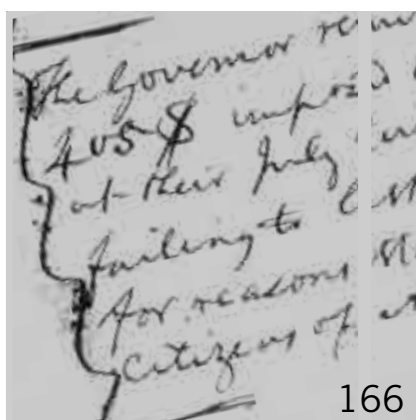 The Governor
405$ imposed
at their July
failing to
for reasons
citizens of
166